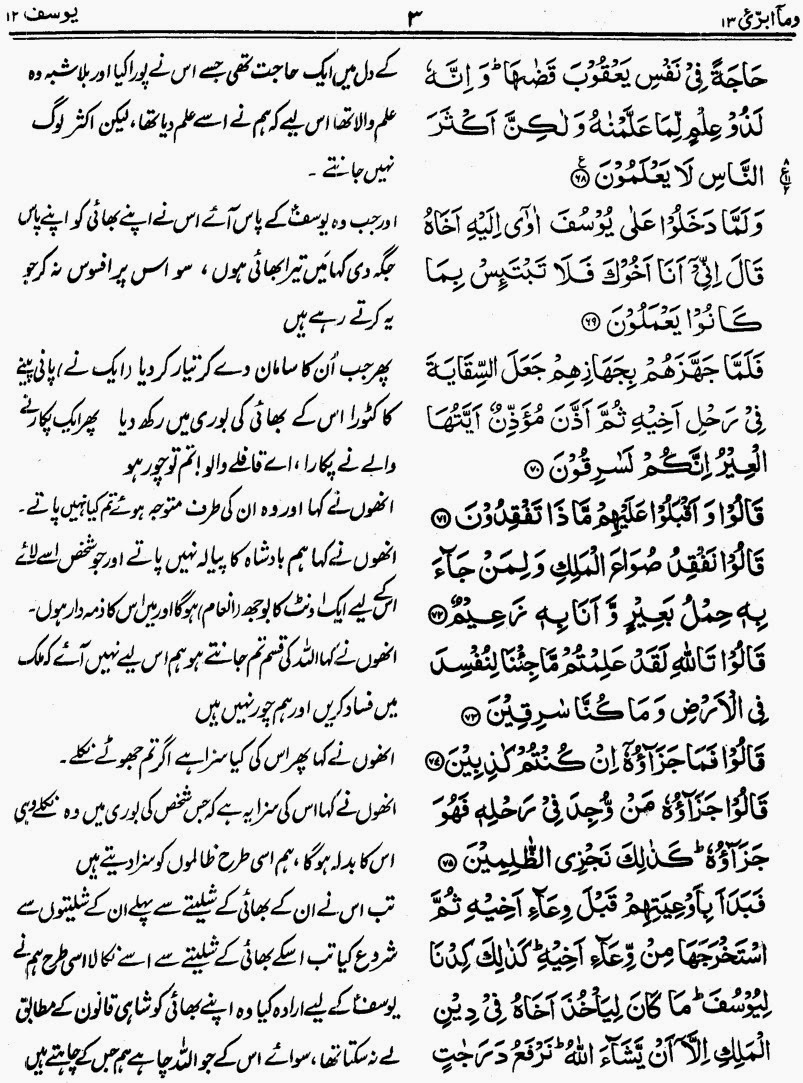 ومآ ابرّئ ۱۳
۳
یوسف ۱۲
حَاجَةً فِیْ نَفْسِ یَعْقُوْبَ قَضٰىهَا ؕ وَ اِنَّهٗ
لَذُوْ عِلْمٍ لِّمَا عَلَّمْنٰهُ وَ لٰكِنَّ اَكْثَرَ
النَّاسِ لَا یَعْلَمُوْنَ ۶۸
وَ لَمَّا دَخَلُوْا عَلٰى یُوْسُفَ اٰوٰۤى اِلَیْهِ اَخَاهُ
قَالَ اِنِّیْۤ اَنَا اَخُوْكَ فَلَا تَبْتَىِٕسْ بِمَا
كَانُوْا یَعْمَلُوْنَ ۶۹
فَلَمَّا جَهَّزَهُمْ بِجَهَازِهِمْ جَعَلَ السِّقَایَةَ
فِیْ رَحْلِ اَخِیْهِ ثُمَّ اَذَّنَ مُؤَذِّنٌ اَیَّتُهَا
الْعِیْرُ اِنَّكُمْ لَسٰرِقُوْنَ ۷۰
قَالُوْا وَ اَقْبَلُوْا عَلَیْهِمْ مَّا ذَا تَفْقِدُوْنَ ۷۱
قَالُوْا نَفْقِدُ صُوَاعَ الْمَلِكِ وَ لِمَنْ جَآءَ
بِهٖ حِمْلُ بَعِیْرٍ وَّ اَنَا بِهٖ زَعِیْمٌ ۷۲
قَالُوْا تَاللّٰهِ لَقَدْ عَلِمْتُمْ مَّا جِئْنَا لِنُفْسِدَ
فِی الْاَرْضِ وَ مَا كُنَّا سٰرِقِیْنَ ۷۳
قَالُوْا فَمَا جَزَآؤُهٗۤ اِنْ كُنْتُمْ كٰذِبِیْنَ ۷۴
قَالُوْا جَزَآؤُهٗ مَنْ وُّجِدَ فِیْ رَحْلِهٖ فَهُوَ
جَزَآؤُهٗ ؕ كَذٰلِكَ نَجْزِی الظّٰلِمِیْنَ ۷۵
فَبَدَاَ بِاَوْعِیَتِهِمْ قَبْلَ وِعَآءِ اَخِیْهِ ثُمَّ
اسْتَخْرَجَهَا مِنْ وِّعَآءِ اَخِیْهِ ؕ كَذٰلِكَ كِدْنَا
لِیُوْسُفَ ؕ مَا كَانَ لِیَاْخُذَ اَخَاهُ فِیْ دِیْنِ
الْمَلِكِ اِلَّاۤ اَنْ یَّشَآءَ اللّٰهُ ؕ نَرْفَعُ دَرَجٰتٍ
کے دل میں ایک حاجت تھی جسے اس نے پورا کیا اور بلاشبہ وہ
علم والا تھا اس لیے کہ ہم نے اسے علم دیا تھا، لیکن اکثر لوگ
نہیں جانتے ۔
اور جب وہ یوسفؑ کے پاس آئے اس نے اپنے بھائی کو اپنے پاس
جگہ دی کہا میں تیرا بھائی ہوں ، سو اس پر افسوس نہ کر جو
یہ کرتے رہے ہیں
پھر جب اُن کا سامان دے کر تیار کر دیا (ایک نے) پانی پینے
کا کٹورا اس کے بھائی کی بوری میں رکھ دیا پھر ایک پکارنے
والے نے پکارا ، اے قافلے والو! تم تو چور ہو
انھوں نے کہا اور وہ ان کی طرف متوجہ ہوئے تم کیا نہیں پاتے ۔
انھوں نے کہا ہم بادشاہ کا پیالہ نہیں پاتے اور جو شخص اسے لائے
اس کے لیے ایک اونٹ کا بوجھ (انعام) ہو گا اور میں اس کا ذمہ دار ہوں۔
انھوں نے کہا اللہ کی قسم تم جانتے ہو ہم اس لیے نہیں آئے کہ ملک
میں فساد کریں اور ہم چور نہیں ہیں
انھوں نے کہا پھر اس کی کیا سزا ہے اگر تم جھوٹے نکلے ۔
انھوں نے کہا اس کی سزا یہ ہے کہ جس شخص کی بوری میں وہ نکلے وہی
اس کا بدلہ ہو گا ، ہم اسی طرح ظالموں کو سزا دیتے ہیں
تب اس نے ان کے بھائی کے شلیتے سے پہلے ان کے شلیتوں سے
شروع کیا تب اسکے بھائی کے شلیتے سے اسے نکالا اسی طرح ہم نے
یوسفؑ کے لیے ارادہ کیا وہ اپنے بھائی کو شاہی قانون کے مطابق
لے نہ سکتا تھا ، سوائے اس کے جو اللہ چاہے ہم جس کے چاہتے ہیں